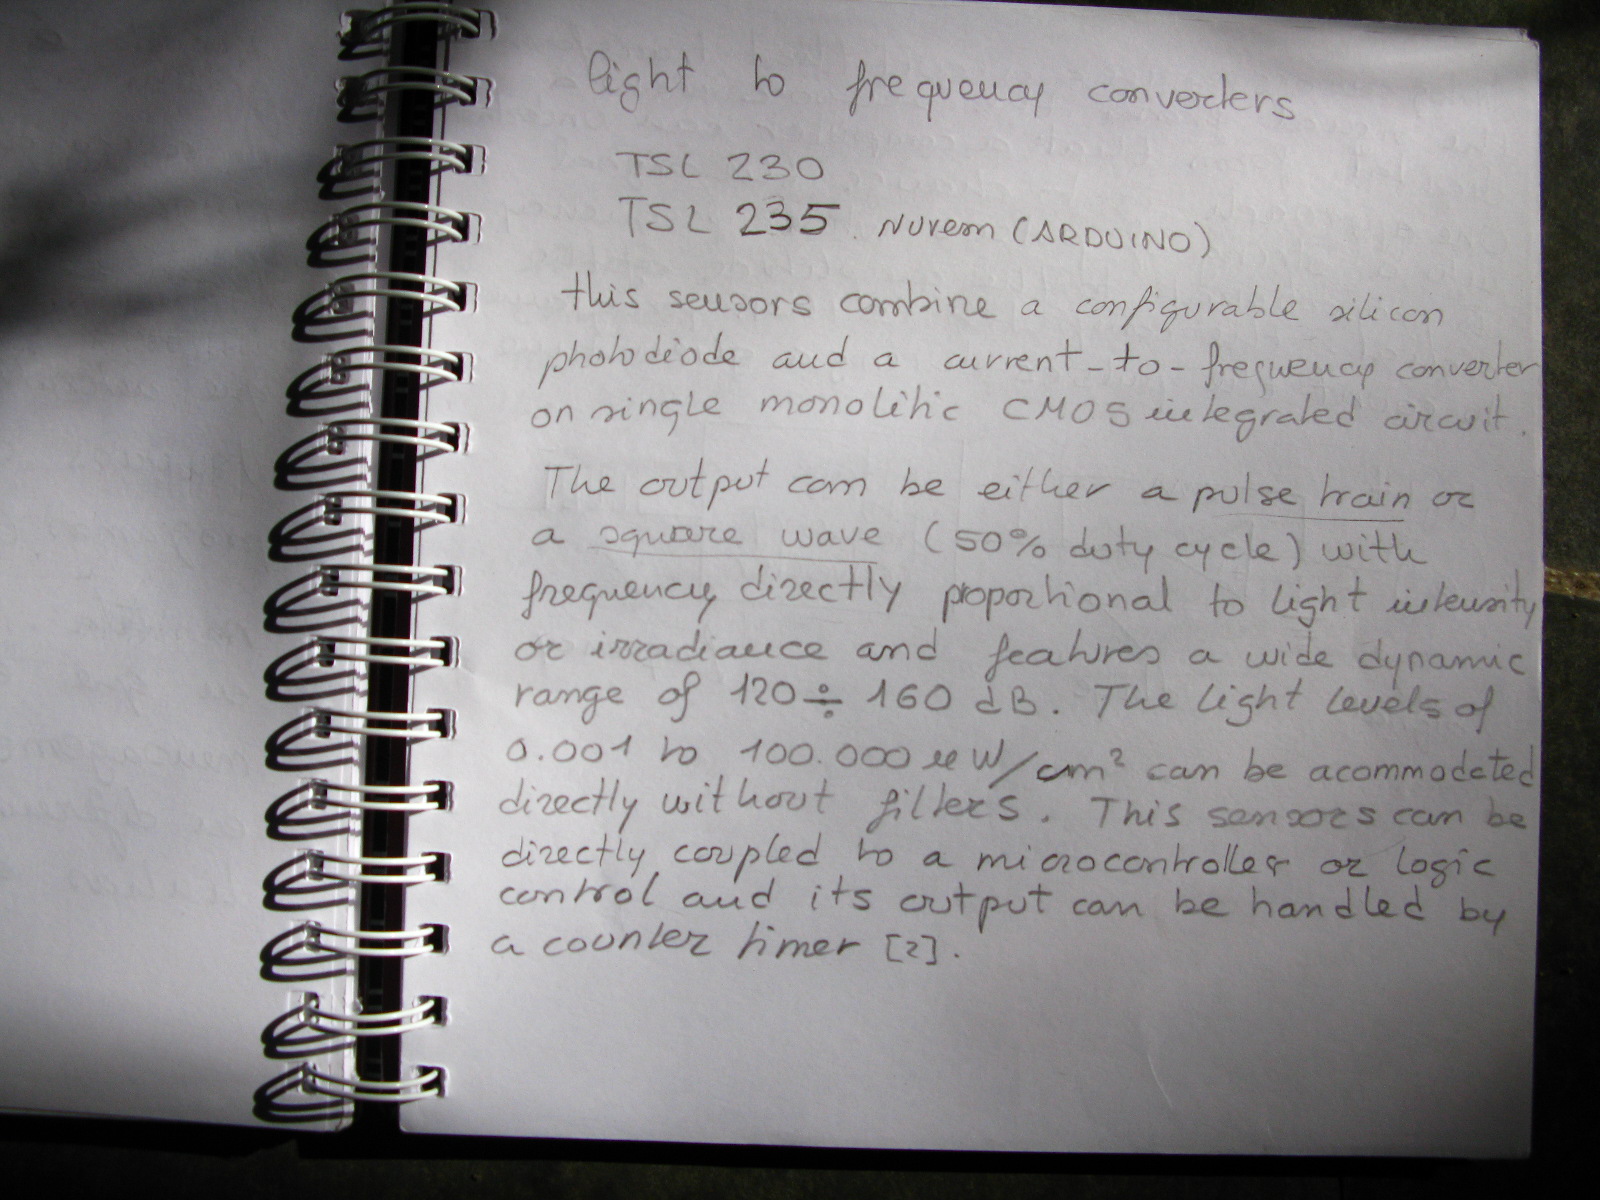 light to frequency converters
TSL 230
TSL 235. Nuvem (ARDUINO)
this sensors combine a configurable silicon
photodiode and a current-to-frequency converter
on single monolitic CMOS integrated circuit.
The output can be either a pulse train or
a square wave (50% duty cycle) with
frequency directly proportional to light intensity
or irradiance and features a wide dynamic
range of 120÷160 dB. The light levels of
0.001 to 100.000 µW/cm² can be acommodated
directly without filters. This sensors can be
directly coupled to a microcontroller or logic
control and its output can be handled by
a counter timer [2].